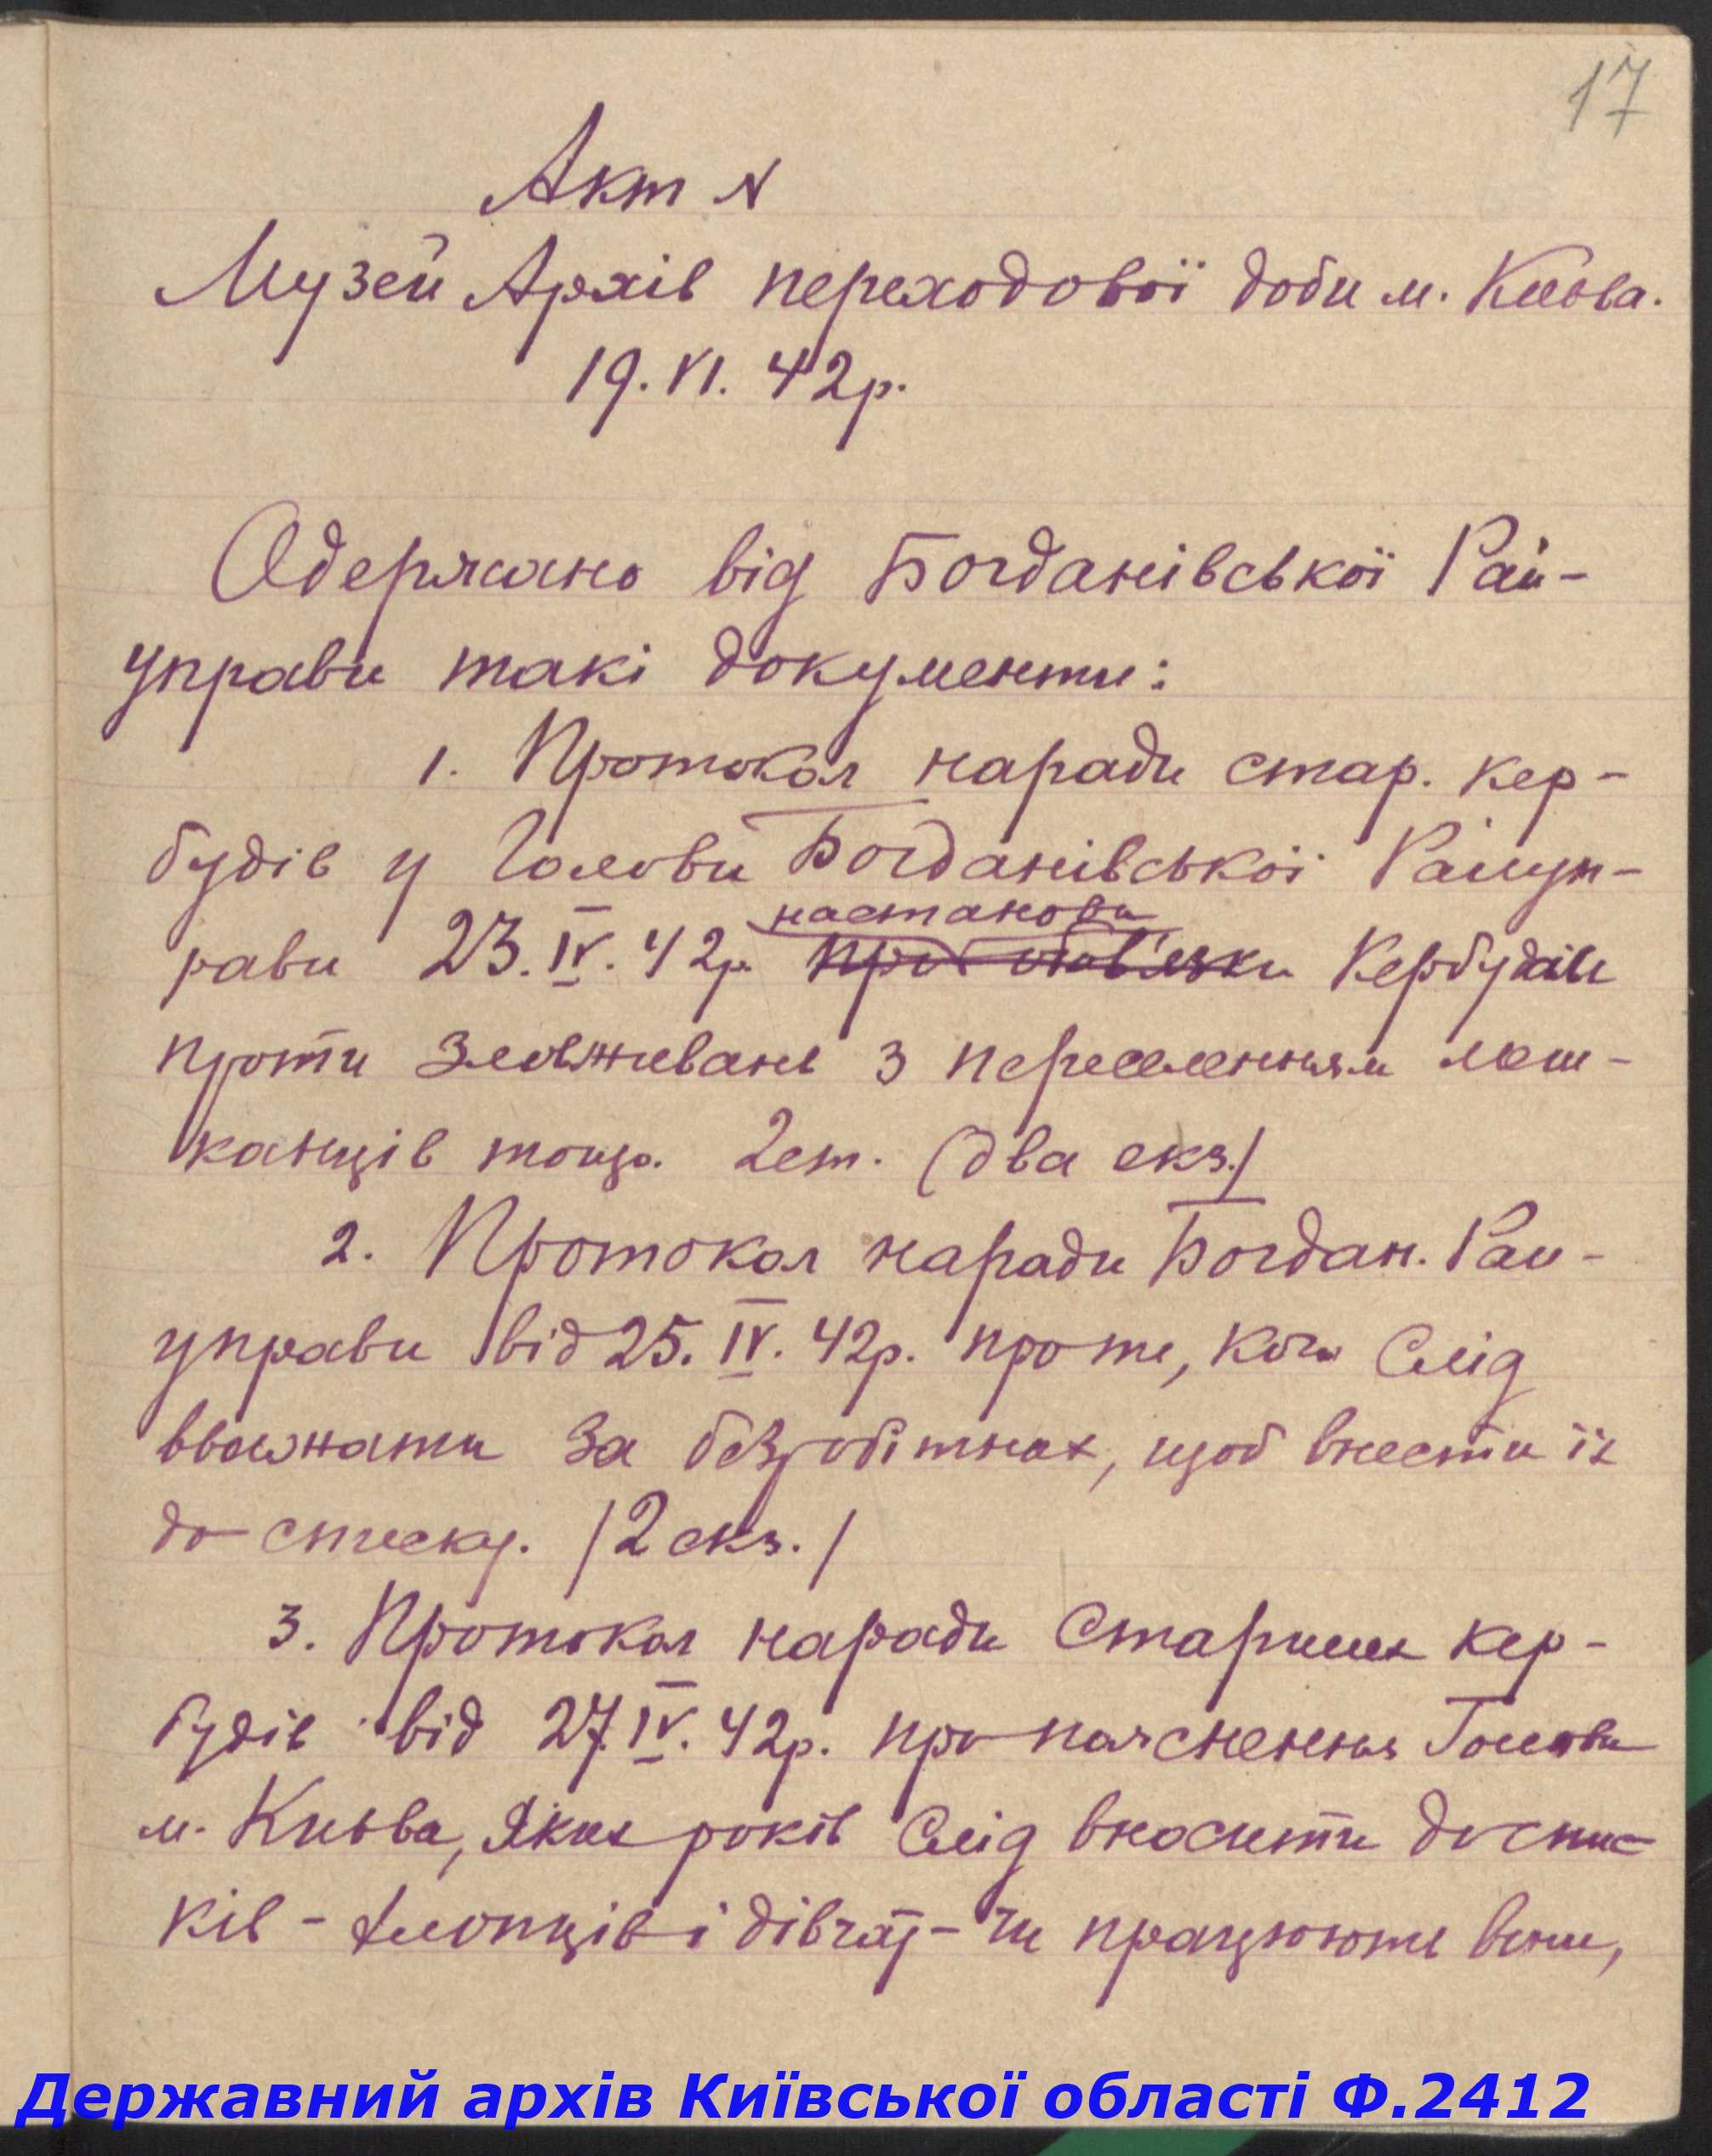 17
Акт N
Музей Архів переходової доби м. Києва.
19.VI.42р.
Одержано від Богданівської Рай-
управи такі документи:
1. Протокол наради стар. кер-
будів у Голови Богданівської Райуп-
рави 23.IV.42р. про обов'язки Кербудів
настанови
проти зловживань з переселенням меш-
канців тощо. 2ст. (два екз.)
2. Протокол наради Богдан. Рай-
управи від 25.IV.42р. про те, кого слід
вважати за безробітних, щоб внести їх
до списку. /2 екз./
3. Протокол наради Старших кер-
будів від 27.IV.42р. про пояснення Голови
м. Києва, яких років слід вносити до спис-
ків - хлопців і дівчат - чи працюють вони,
Державний архів Київської області Ф.2412